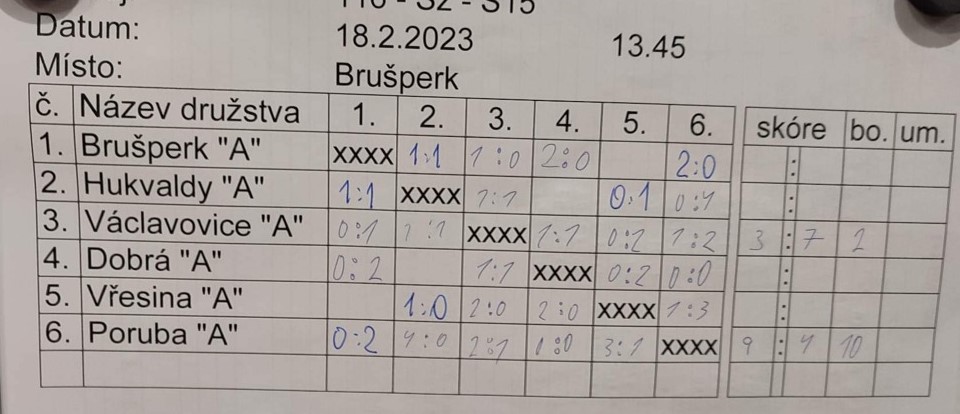 - S2 - S15
Datum: 18.2.2023 13.45
Místo: Brušperk
č. Název družstva 1. 2. 3. 4. 5. 6. skóre bo. um.
1. Brušperk "A" XXXX 1:1 1:0 2:0 2:0 :
2. Hukvaldy "A" 1:1 XXXX 1:1 0:1 0:4 :
3. Václavovice "A" 0:1 1:1 XXXX 1:1 0:2 1:2 3 : 7 2
4. Dobrá "A" 0:2 1:1 XXXX 0:2 0:0 :
5. Vřesina "A" 1:0 2:0 2:0 XXXX 1:3 :
6. Poruba "A" 0:2 4:0 2:1 0:0 3:1 XXXX 9 : 4 10